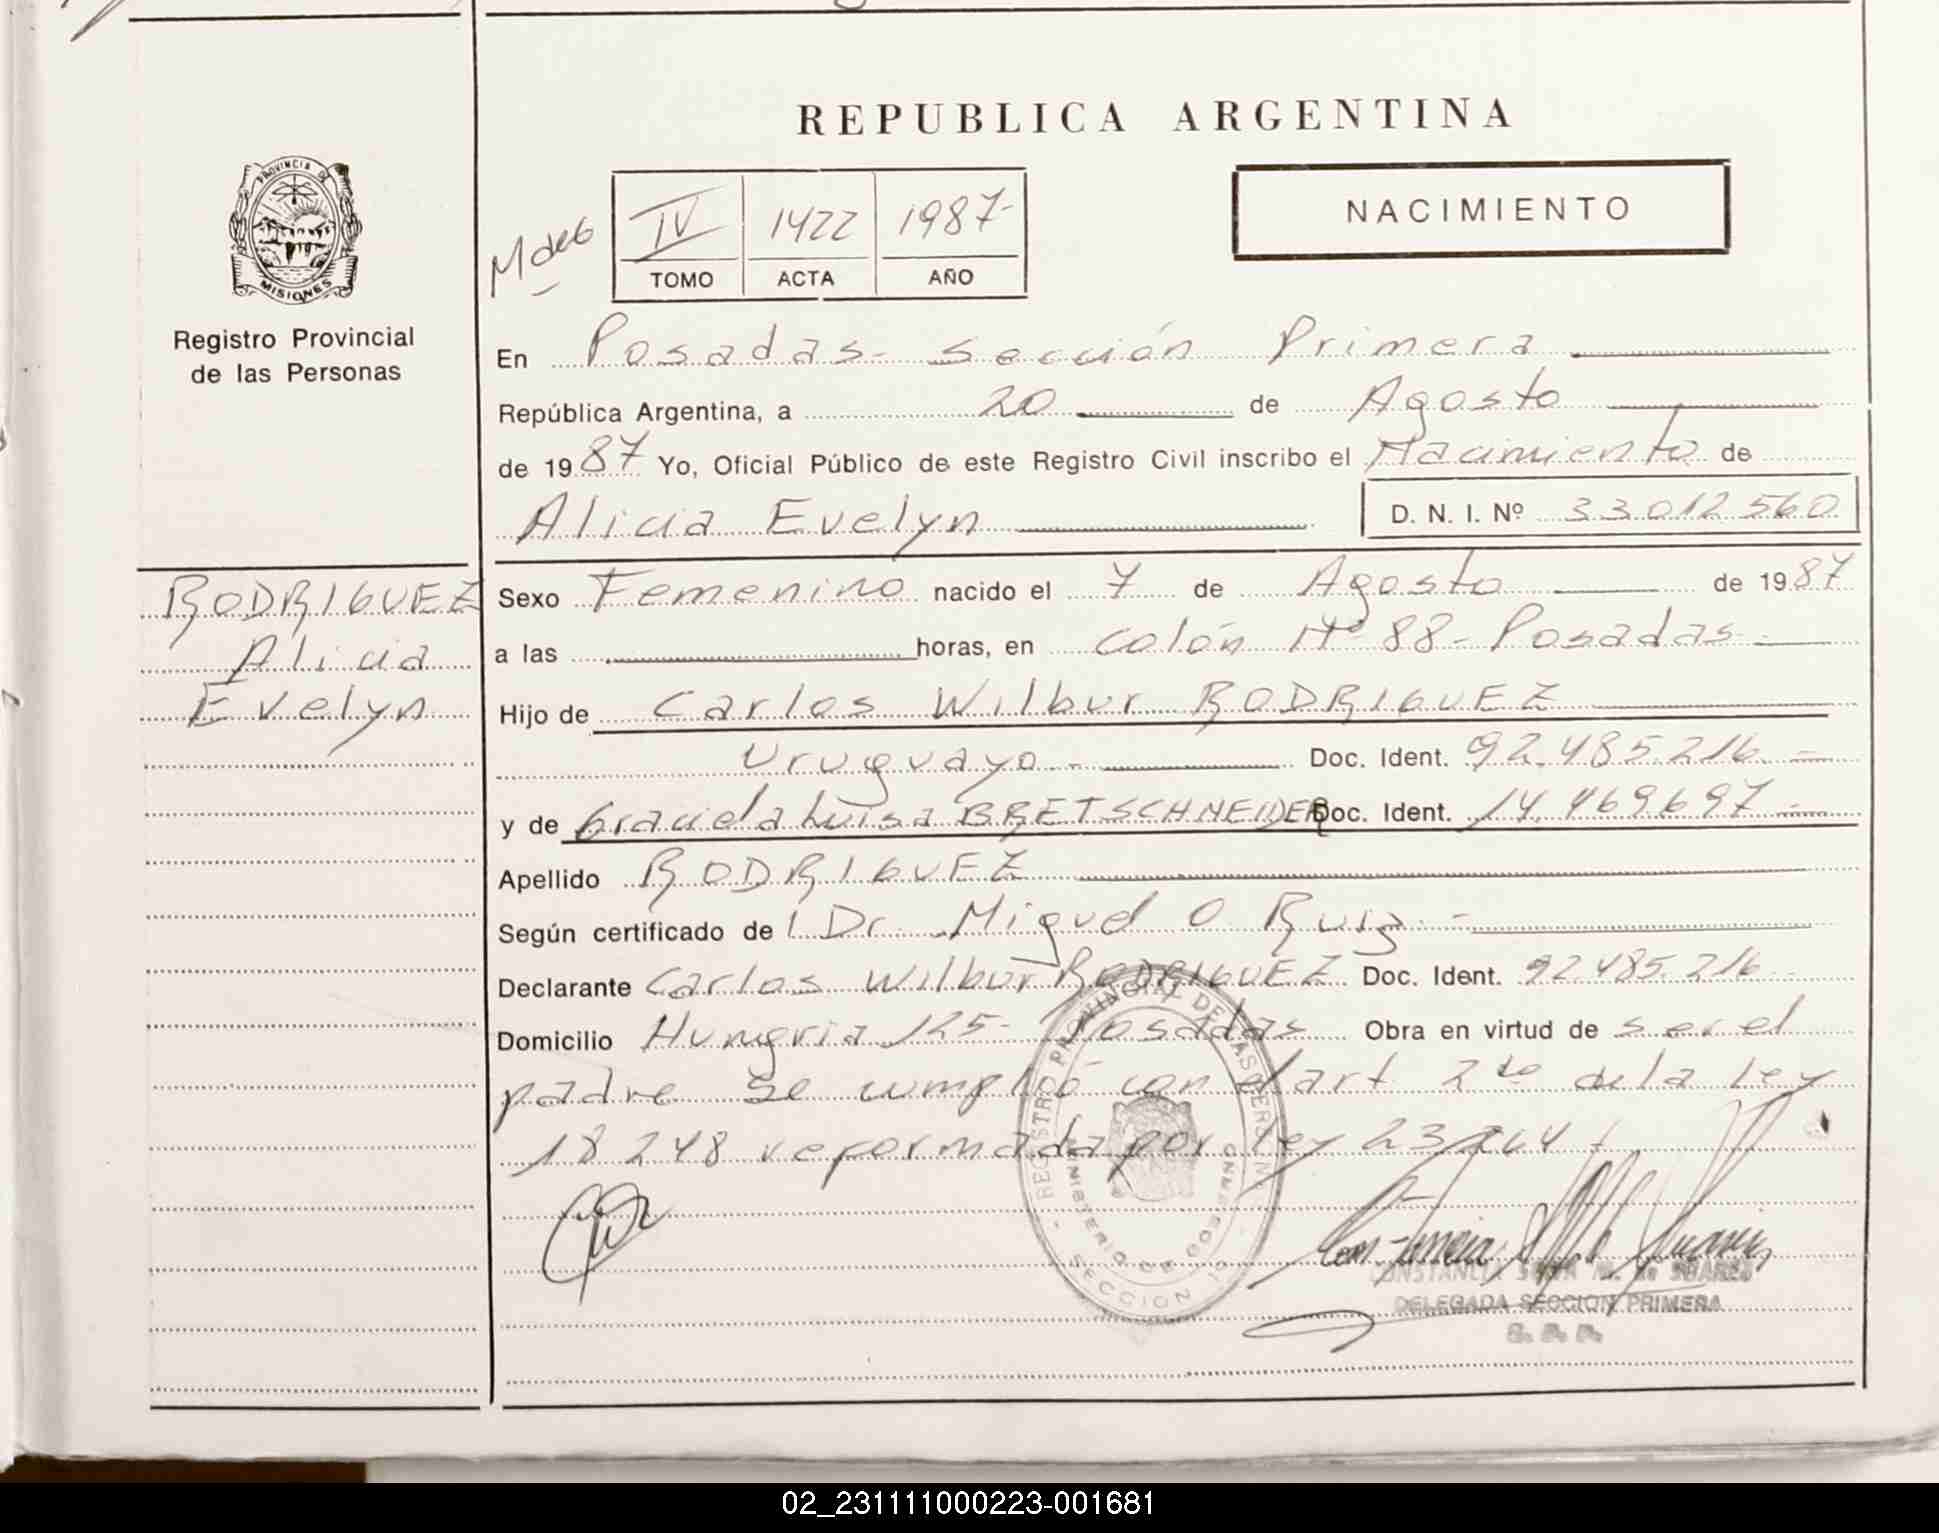 REPUBLICA ARGENTINA
PROVINCIA DE
MISIONES
Registro Provincial
de las Personas
IV 1422 1987-
TOMO ACTA AÑO
NACIMIENTO
En Posadas- sección Primera
República Argentina, a 20 de Agosto
de 1987 Yo, Oficial Público de este Registro Civil inscribo el Nacimiento de
Alicia Evelyn D. N. I. Nº 33012560
RODRIGUEZ
Alicia
Evelyn
Sexo Femenino nacido el 7 de Agosto de 1987
a las horas, en colón Nº 88- Posadas-
Hijo de Carlos Wilbur RODRIGUEZ
Uruguayo- Doc. Ident. 92.485.216.-
y de Graciela Luisa BRETSCHNEIDER Doc. Ident. 14.469.697-
Apellido RODRIGUEZ
Según certificado de l Dr. Miguel O. Ruiz-
Declarante Carlos Wilbur RODRIGUEZ Doc. Ident. 92.485.216-
Domicilio Hungria 125- Posadas Obra en virtud de ser el
padre se cumplió con el art 2do de la Ley
18 248 reformada por Ley 23264
REGISTRO PROVINCIAL DE LAS PERSONAS
MINISTERIO DE GOBIERNO
SECCION 1º
CONSTANCIA M. de SUAREZ
DELEGADA SECCION PRIMERA
02_231111000223-001681